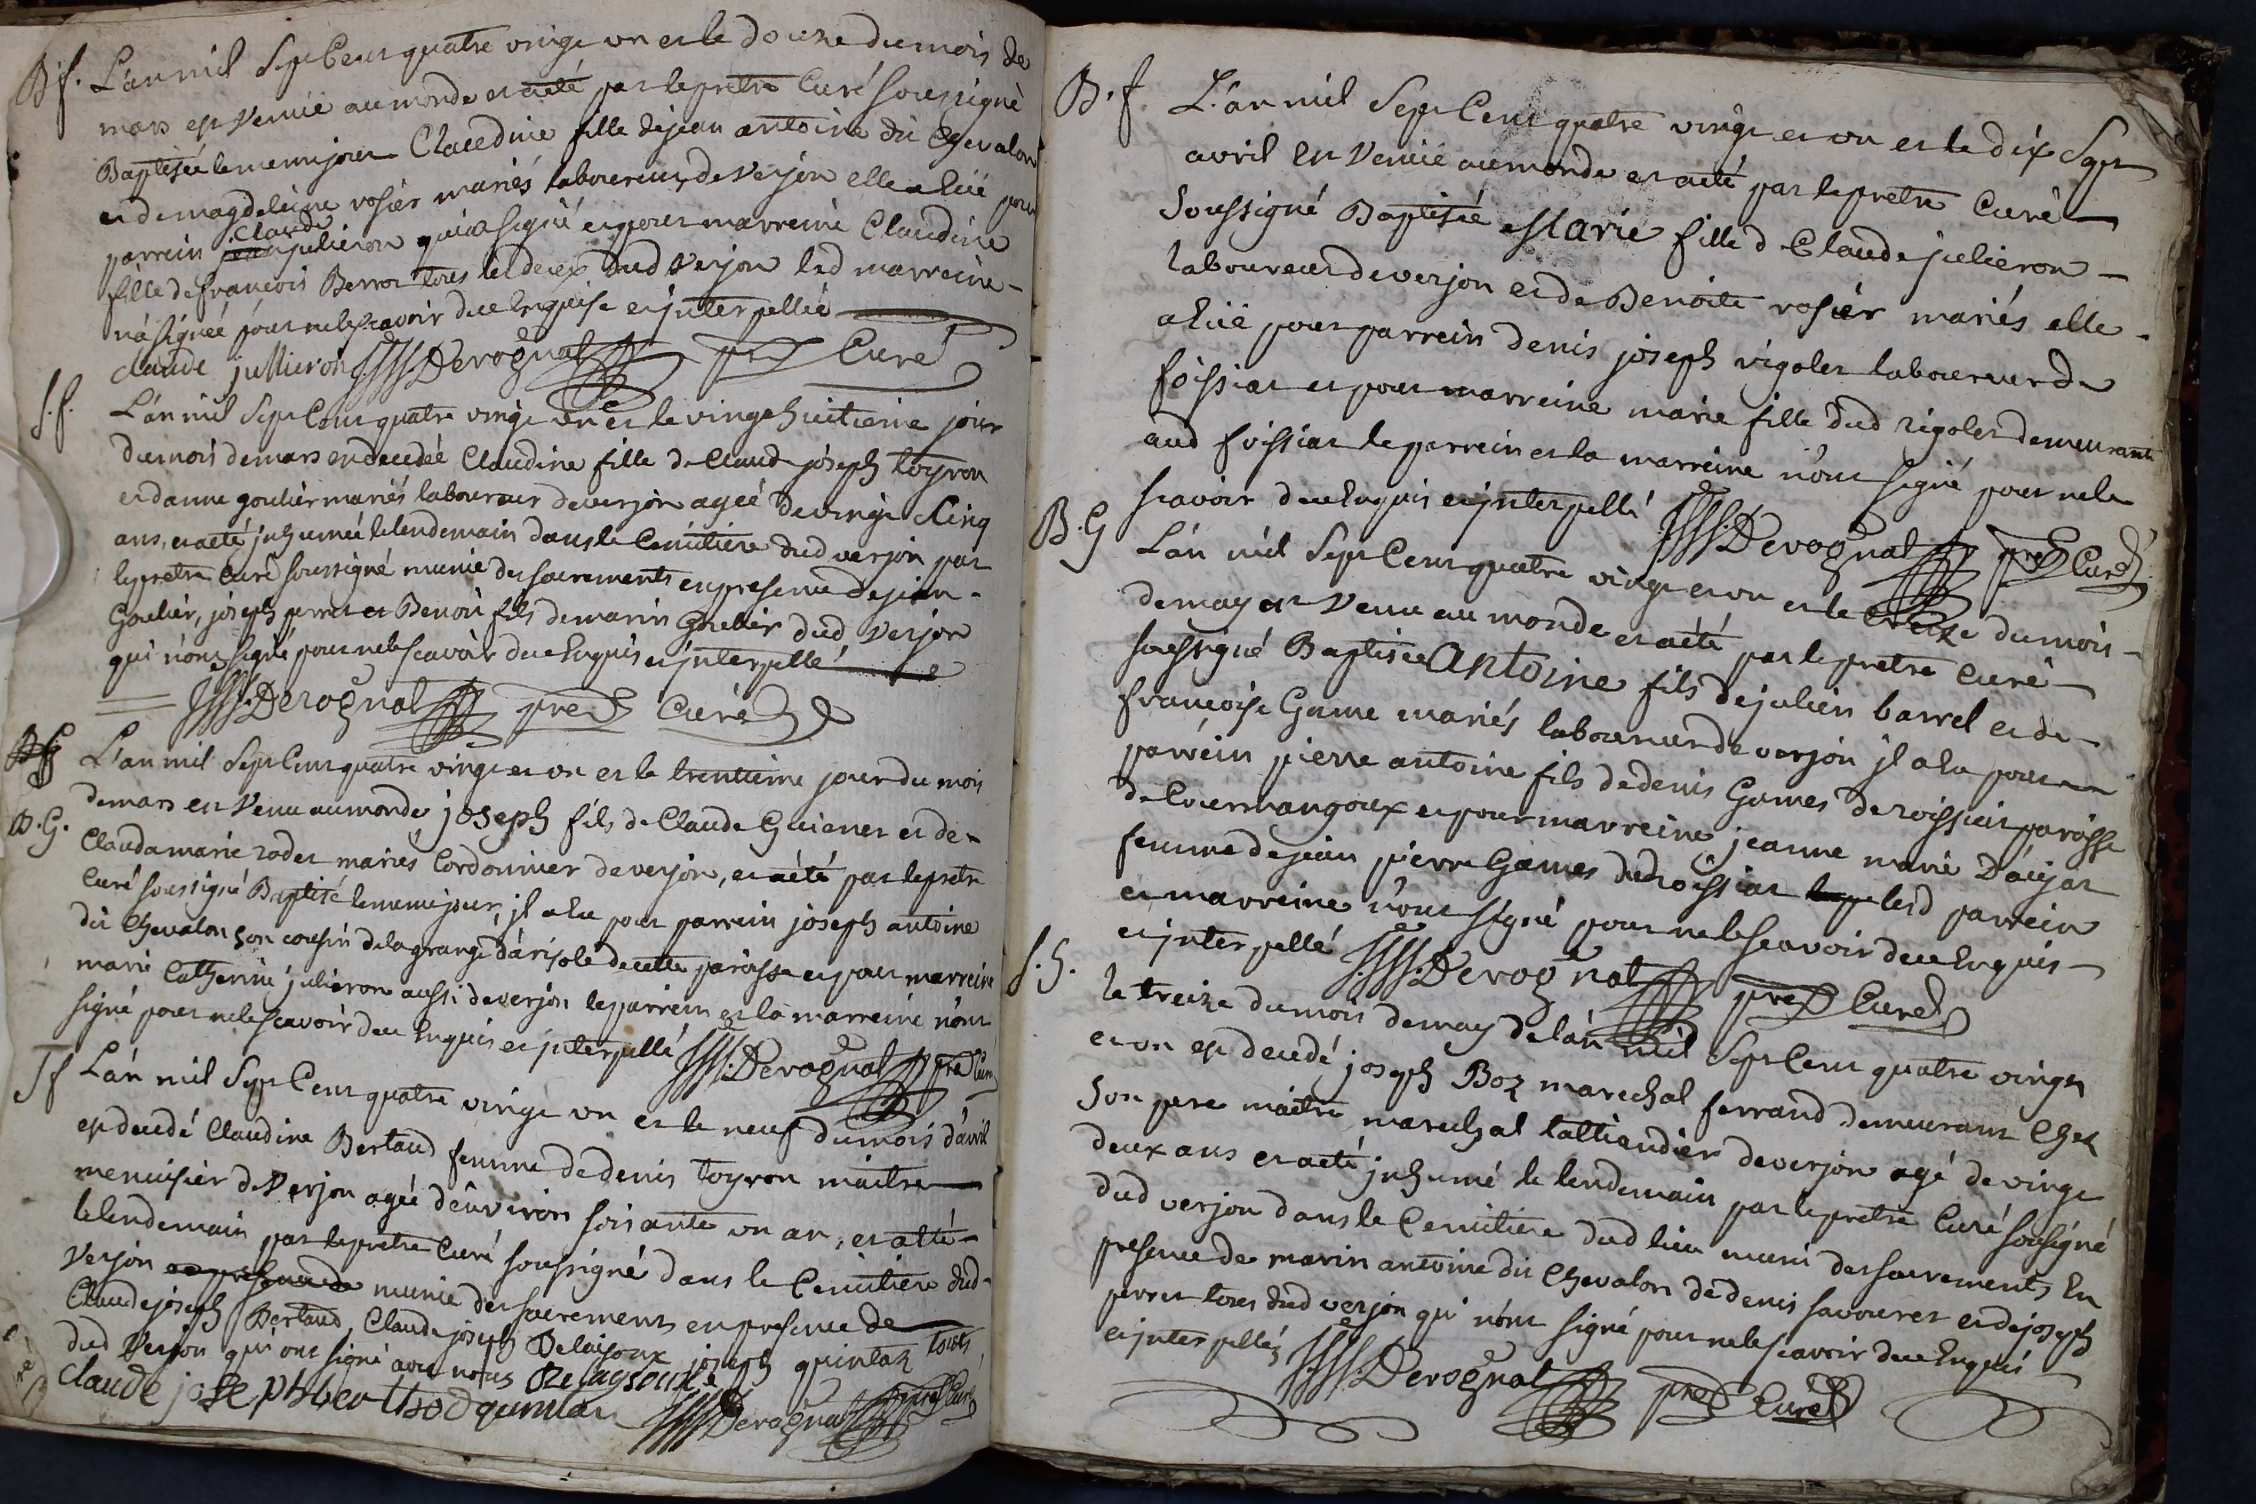 B.f. L'an mil Sept Cent quatre vingt un et le douze du mois de
mars est Venüe au monde et a été par le pretre Curé soussigné
Baptisée le meme jour Claudine fille de jean antoine dit Chevalon
et de magdeleine rosier mariés laboureur de Verjon elle a Eüe pour
parrein Claude julieron qui a signé et pour marreine Claudine
fille de francois Berrot tous les deux dud Verjon lad marreine
n'a signée pour ne le scavoir düe Enquise et jnterpellée
claude jullieron Derognat ptre Curé
S.f. L'an mil Sept Cent quatre vingt un et le vingt huitieme jour
du mois de mars est decedée Claudine fille de Claude joseph toyron
et d'anne goulier mariés laboureur de verjon agée de vingt Cinq
ans, et a eté jnhumée le lendemain dans le Cemitiere dud verjon par
le pretre Curé soussigné munie des sacrements en presence de jean
Goulier, joseph perret et Benoit fils de marin Goulier dud Verjon
qui n'ont signé pour ne le scavoir due Enquis et jnterpellé
Derognat ptre Curé
B.G. L'an mil Sept Cent quatre vingt et un et le trentieme jour du mois
de mars est Venu au monde joseph fils de Claude Guienet et de
Claudamarie rodet mariés Cordonnier de verjon, et a été par le pretre
Curé soussigné Baptisé le meme jour, jl a Eu pour parrein joseph antoine
dit Chevalon son cousin de la grange d'arisole de cette paroisse et pour marreine
marie Catherine julieron aussi de verjon le parrein et la marreine n'ont
signé pour ne le scavoir due Enquis et jnterpellé Derognat ptre Curé
S f L'an mil Sept Cent quatre vingt un et le neuf du mois d'avril
est decedé Claudine Bertaud femme de denis toyron maitre
menuisier de Verjon agée d'environ soisante un an, et a été
le lendemain par le pretre Curé soussigné dans le Cemitiere dud
Verjon en presence de munie des sacrements en presence de
Claude joseph Bertaud, Claude joseph Delaijoux joseph quintaz tous
dud Verjon qui ont signé avec nous Delaysoux
claude joseph berthod quintaz Derognat ptre Curé
B.f. L'an mil Sept Cent quatre vingt et un et le dix Sept
avril est Venüe au monde et a été par le pretre Curé
Soussigné Baptisée Marie fille de Claude julieron
laboureur de verjon et de Benoite rosier mariés elle
a Eüe pour parrein denis joseph rigolet laboureur de
foissiat et pour marreine marie fille dud rigolet demeurante
aud foissiat le parrein et la marreine n'ont signé pour ne le
scavoir due Enquis et jnterpellé Derognat ptre Curé
B.G L'an mil Sept Cent quatre vingt et un et le treize du mois
de may est Venu au monde et a été par le pretre Curé
soussigné Baptisé Antoine fils de julien barrel et de
francoise Game mariés laboureur de verjon jl a Eu pour
parrein pierre antoine fils de denis Games de roissiat paroisse
de Courmangoux et pour marreine jeanne marie Daujat
femme de jean pierre Games dud roissiat lesd parrein
et marreine n'ont signé pour ne le scavoir due Enquis
et jnterpellé Derognat ptre Curé
S.G. le treize du mois de may de l'an mil Sept Cent quatre vingt
et un est decedé joseph Boz marechal ferrand demeurant Chez
Son pere maitre marechal talliandier de verjon agé de vingt
deux ans et a eté jnhumé le lendemain par le pretre Curé soussigné
dud verjon dans le Cemitiere dud lieu muni des sacrements En
presence de marin antoine dit Chevalon de denis savouret et de joseph
perret tous dud verjon qui n'ont signé pour ne le scavoir due Enquis
et jnterpellez Derognat ptre Curé